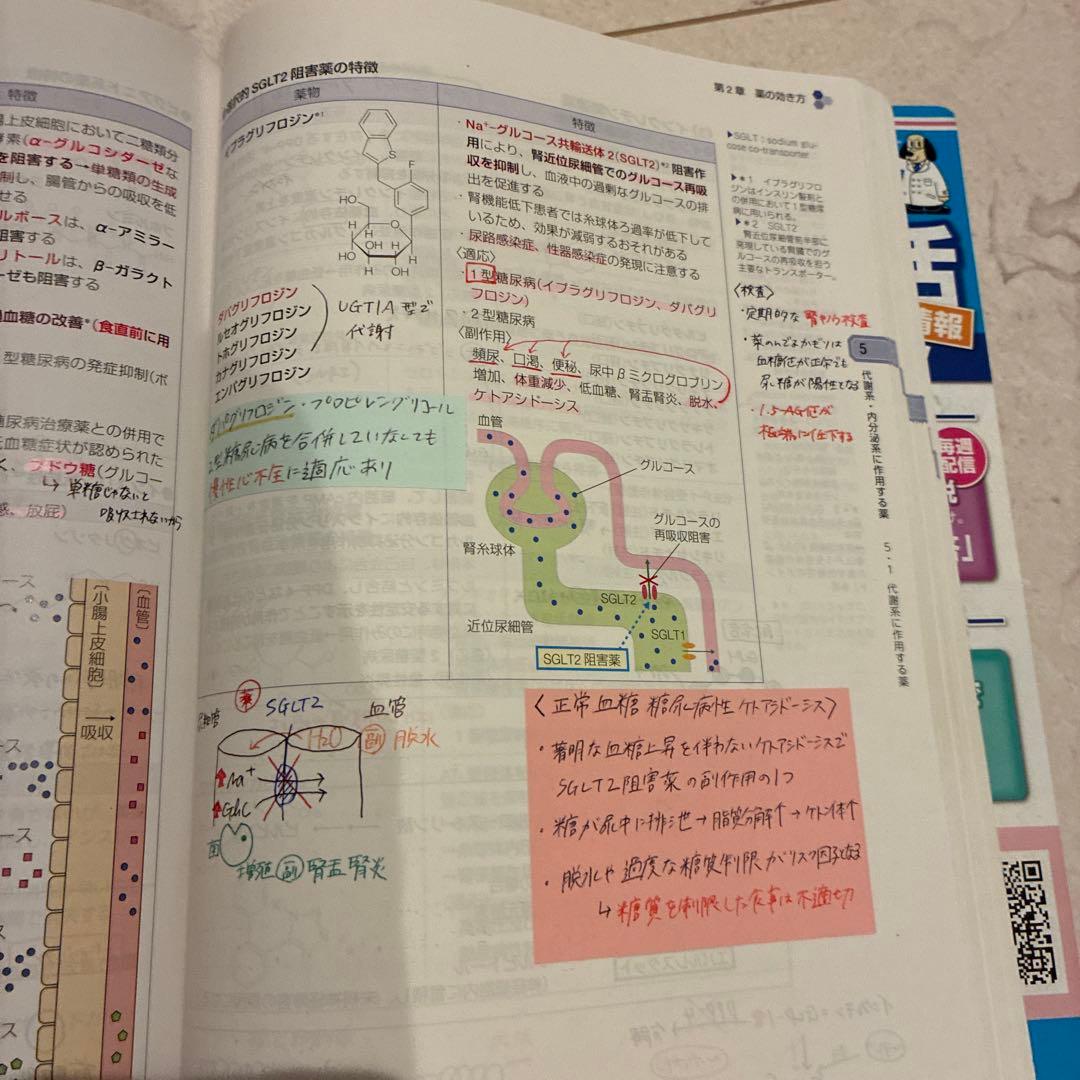 特徴
上皮細胞において二糖類分
酵素(α-グルコシダーゼな
を阻害する→単糖類の生成
制し、腸管からの吸収を低
せる
ルボースは、α-アミラー
阻害する
リトールは、β-ガラクト
ーゼも阻害する
血糖の改善*(食直前に用
型糖尿病の発症抑制(ボ
糖尿病治療薬との併用で
低血糖症状が認められた
く、ブドウ糖(グルコー
↳ 単糖じゃないと
吸収されないから
感、放屁)
ース
〔小腸上皮細胞〕
〔血管〕
吸収
ース
ース
ース
ス
択的 SGLT2 阻害薬の特徴
第2章 薬の効き方
薬物
特徴
イプラグリフロジン*1
S
F
HO
HO
O
OH
OH
OH
ダパグリフロジン
ルセオグリフロジン
トホグリフロジン
カナグリフロジン
エンパグリフロジン
UGT1A型で
代謝
ダパグリフロジン・プロピレングリコール
2型糖尿病を合併していなくても
慢性心不全に適応あり
・Na⁺-グルコース共輸送体2(SGLT2)*2 阻害作
用により、腎近位尿細管でのグルコース再吸
収を抑制し、血液中の過剰なグルコースの排
出を促進する
・腎機能低下患者では糸球体ろ過率が低下して
いるため、効果が減弱するおそれがある
・尿路感染症、性器感染症の発現に注意する
〈適応〉
・1型糖尿病(イプラグリフロジン、ダパグリ
フロジン)
・2型糖尿病
〈副作用〉
頻尿、口渇、便秘、尿中βミクログロブリン
増加、体重減少、低血糖、腎盂腎炎、脱水、
ケトアシドーシス
血管
グルコース
グルコースの
再吸収阻害
腎糸球体
SGLT2
近位尿細管
SGLT1
SGLT2 阻害薬
▶SGLT:sodium glu-
cose co-transporter
▶*1 イプラグリフロ
ジンはインスリン製剤と
の併用において1型糖尿
病に用いられる。
▶*2 SGLT2
腎近位尿細管前半部に
発現している腎臓でのグ
ルコースの再吸収を担う
主要なトランスポーター。
〈検査〉
・定期的な腎機能検査
・薬のんでるかぎりは
血糖値が正常でも
尿糖が陽性となる
・1,5-AG値が
極端に低下する
5
代謝系・内分泌系に作用する薬
5・1 代謝系に作用する薬
薬
SGLT2
血管
H₂O
副 脱水
Na⁺
Gluc
菌
増殖 副 腎盂腎炎
〈正常血糖 糖尿病性ケトアシドーシス〉
・著明な血糖上昇を伴わないケトアシドーシスで
SGLT2阻害薬の副作用の1つ
・糖が尿中に排泄→脂質分解↑→ケトン体↑
・脱水や過度な糖質制限がリスク因子となる
↳ 糖質を制限した食事は不適切
活
情報